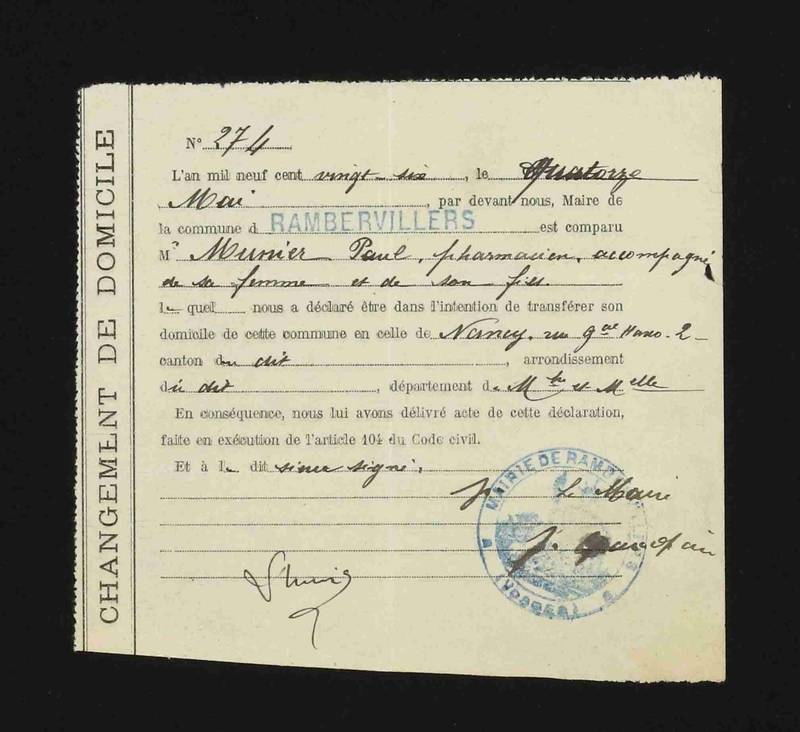 CHANGEMENT DE DOMICILE
N° 274
L'an mil neuf cent vingt-six, le Quatorze
Mai, par devant nous, Maire de
la commune d RAMBERVILLERS est comparu
Mr Munier Paul, pharmacien, accompagné
de sa femme et de son fils.
le quel nous a déclaré être dans l'intention de transférer son
domicile de cette commune en celle de Nancy, rue gal Haxo. 2
canton du dit, arrondissement
du dit, département de Mthe et Melle
En conséquence, nous lui avons délivré acte de cette déclaration,
faite en exécution de l'article 104 du Code civil.
Et à le dit sieur signé.
Le Maire
MAIRIE DE RAMBERVILLERS
(Vosges)